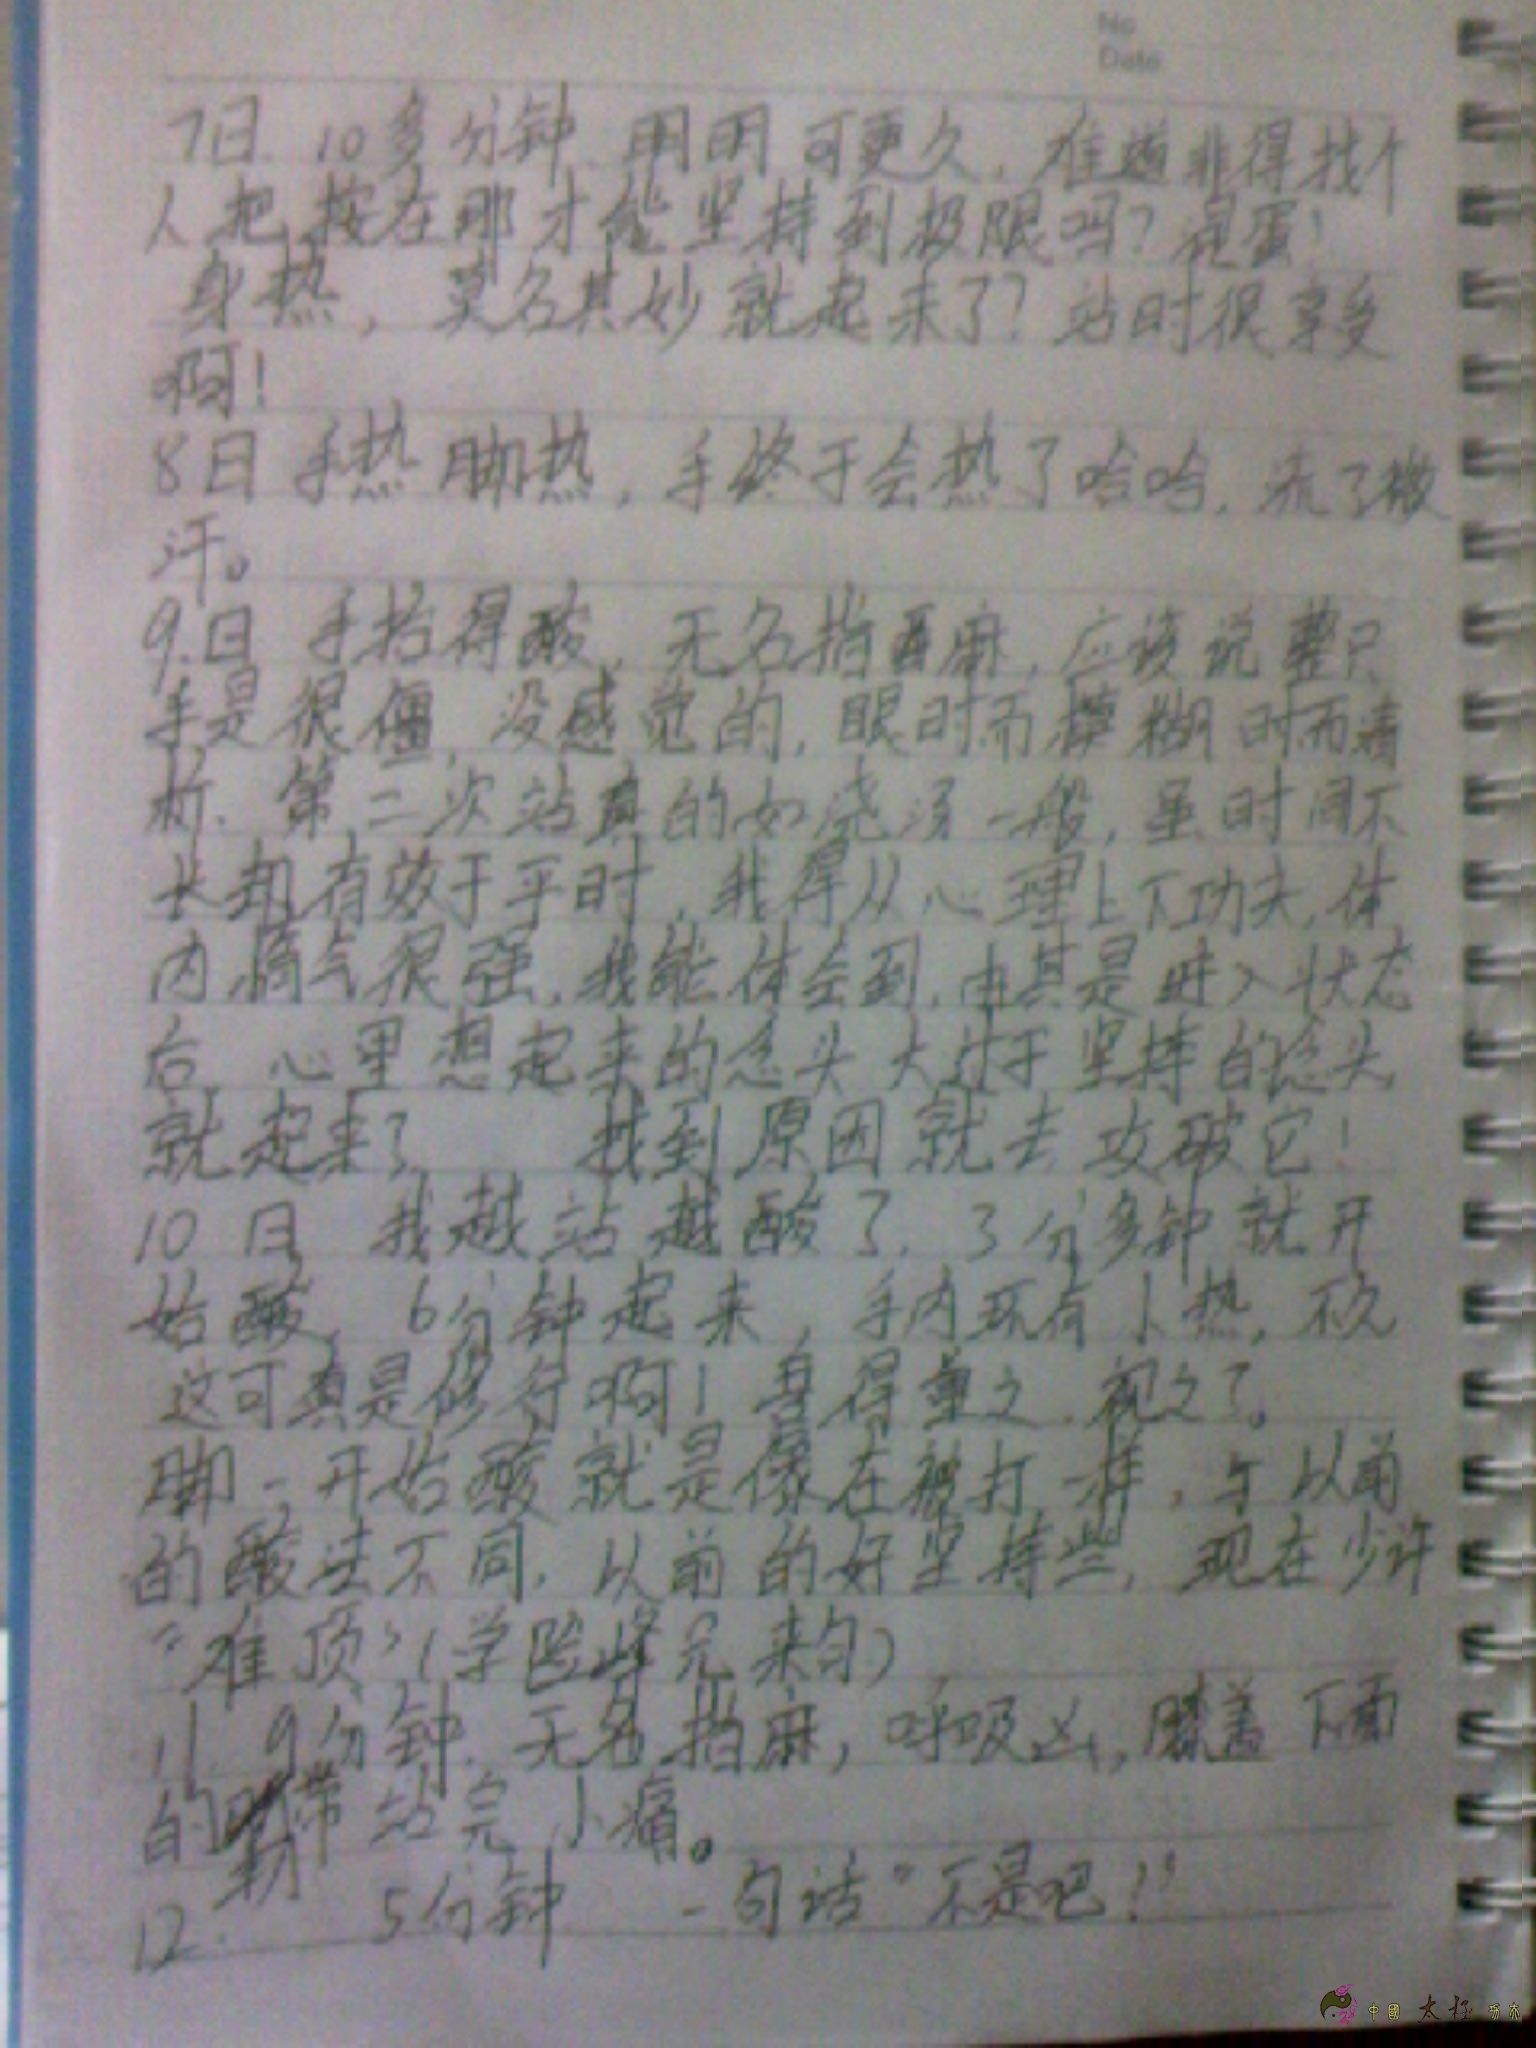 No
Date
7日 10多分钟 明明可更久，难道非得找个
人把按在那才能坚持到极限吗？混蛋！
身热，莫名其妙就起来了？站时很享受
啊！
8日 手热 脚热，手终于会热了哈哈，流了微
汗。
9.日 手抬得酸，无名指更麻，应该说整只
手是很僵，没感觉的，眼时而模糊时而清
析．第二次站真的如浇汤一般，虽时间不
长却有效于平时，我得从心理上下功夫，体
内 气很强，我能体会到，由其是进入状态
后 心里想起来的念头大过于坚持的念头
就起来了 找到原因就去攻破它！
10 日 我越站越酸了，3分多钟就开
始酸，6分钟起来，手内环有小热，
这可真是修行啊！ 得重之．视之了。
脚一开始酸就是像在被打一样，与以前
的酸法不同，以前的好坚持些，现在少许
“难顶”（学险峰兄来句）
11. 9分钟．无名指麻，呼吸凶，膝盖下面
的韧带站完小痛。
12. 5分钟 一句话“不是吧！”
中國太极功夫